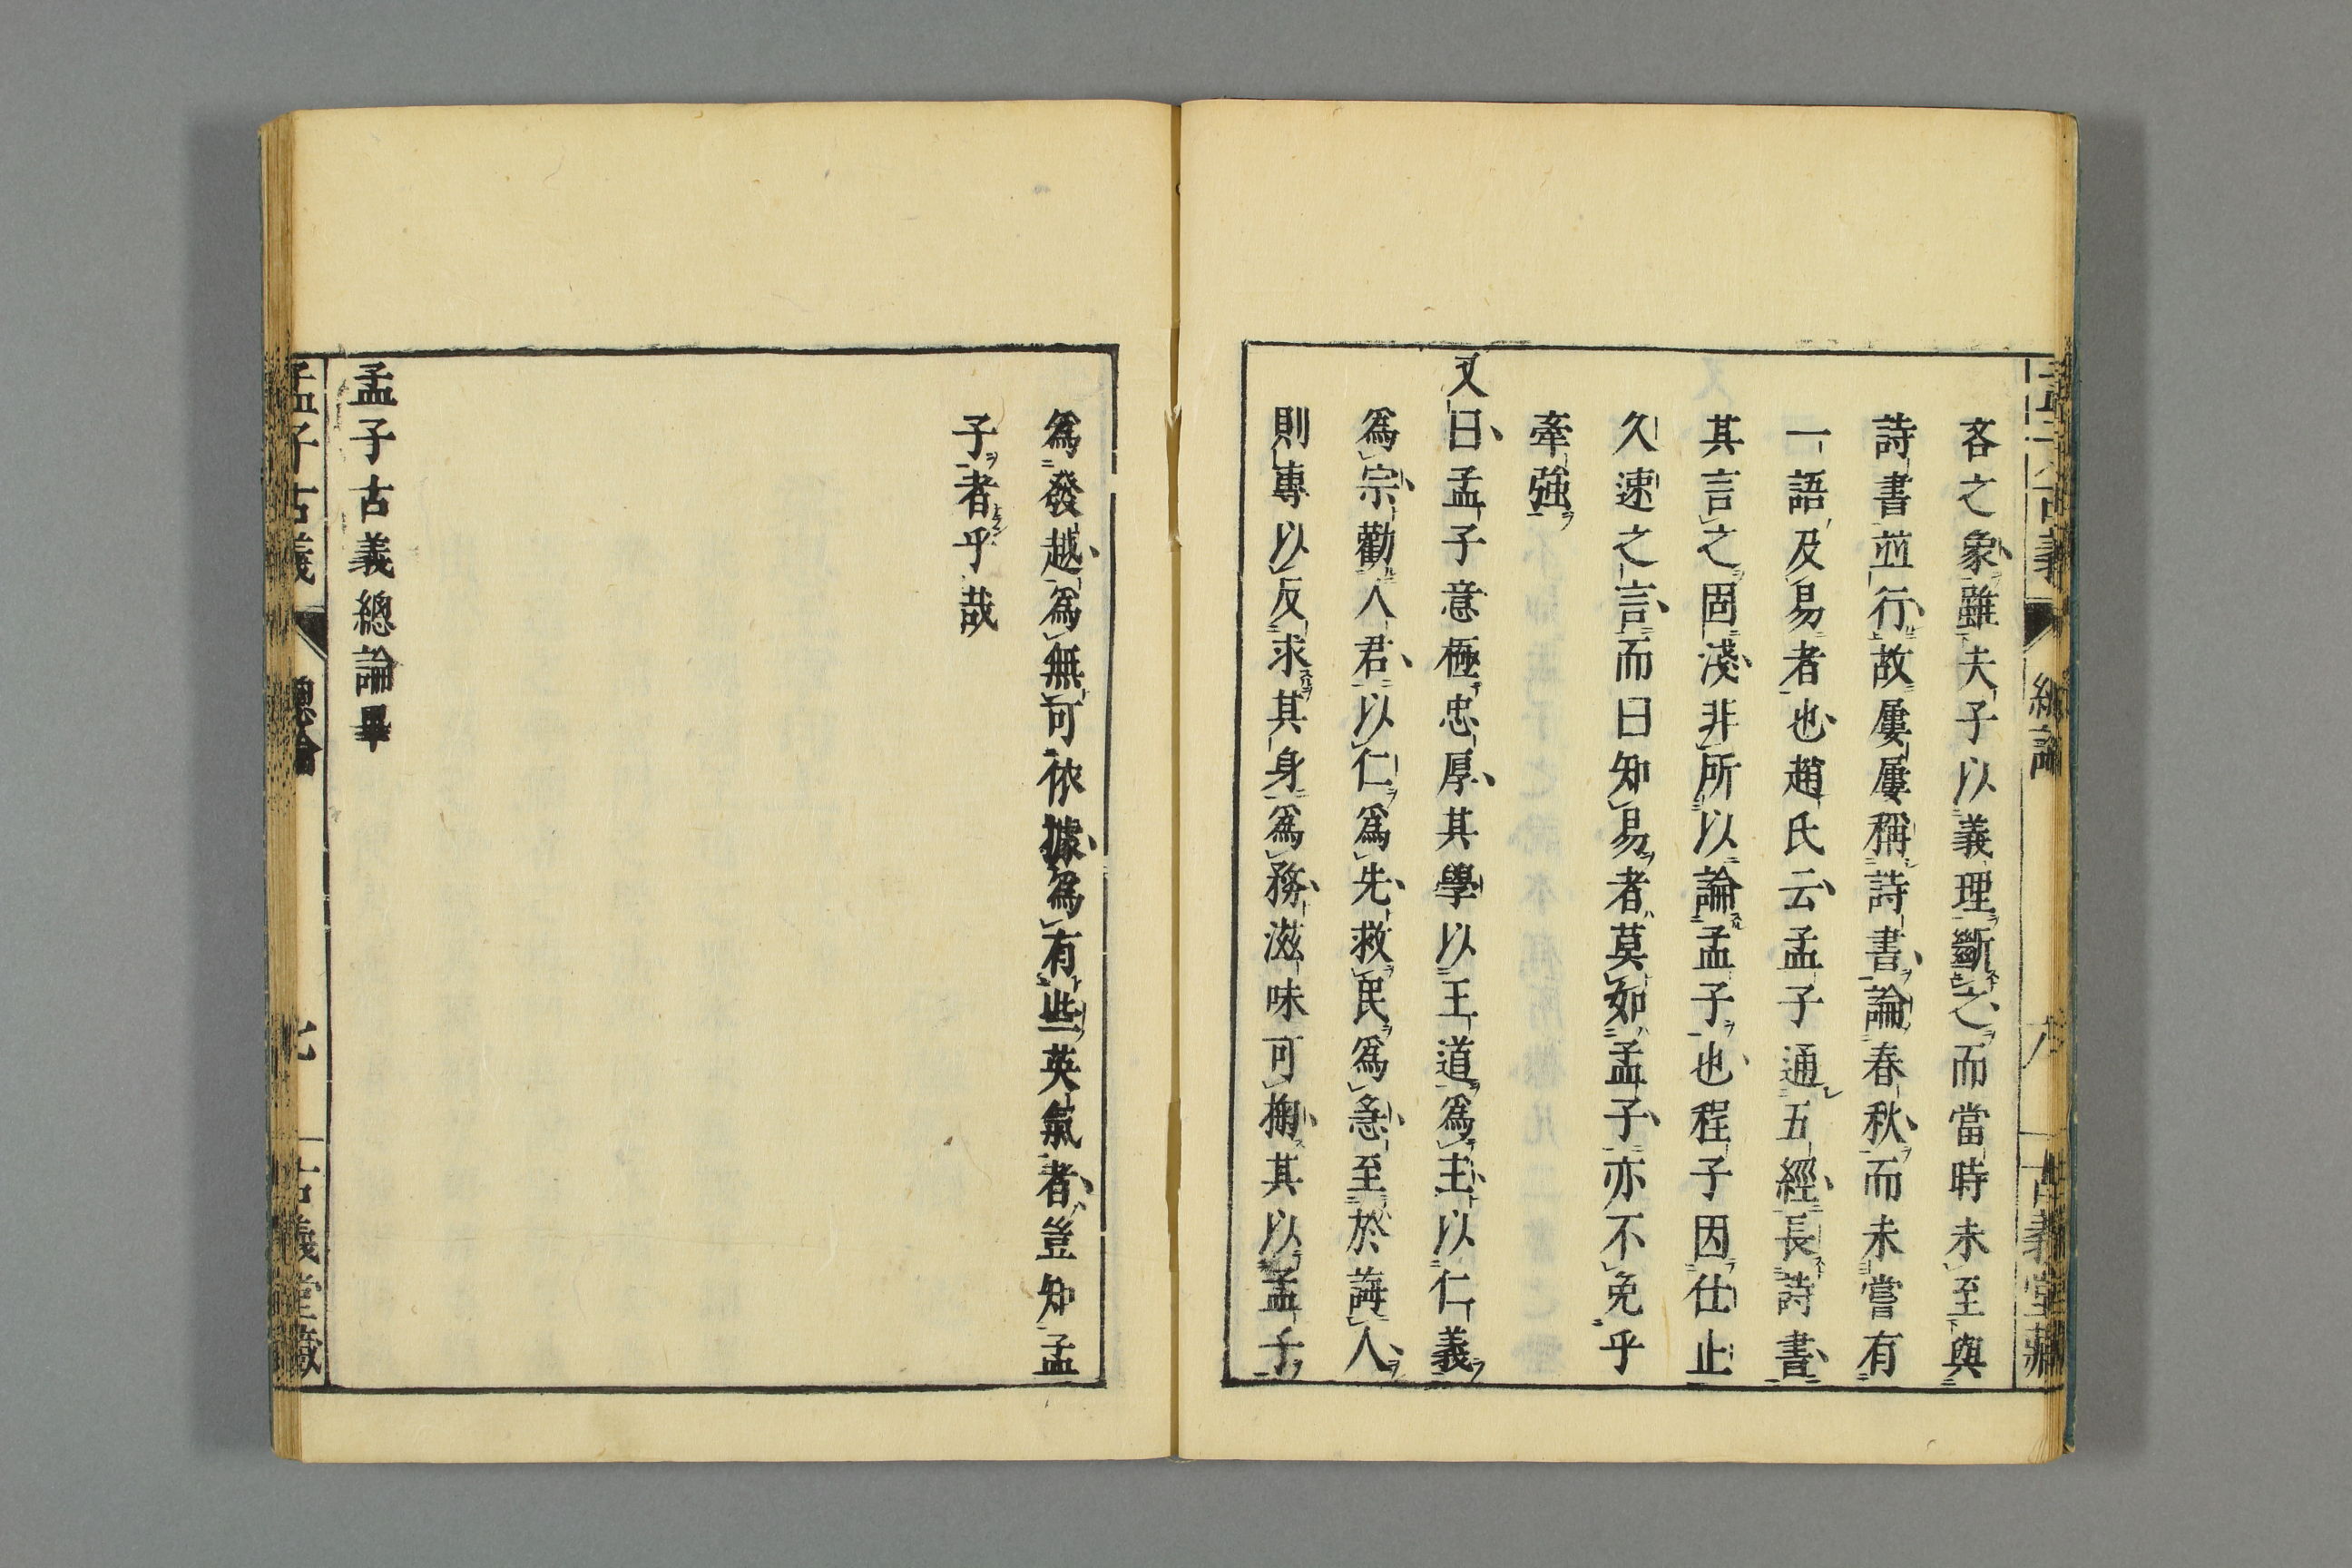 吝之象雖夫子以義理斷之而當時未至與
詩書並行故屢屢稱詩書論春秋而未嘗有
一語及易者也趙氏云孟子通五經長詩書
其言之固淺非所以論孟子也程子因仕止
久速之言而曰知易者莫如孟子亦不免乎
牽強
又曰孟子意極忠厚其學以王道爲主以仁義
爲宗勸人君以仁爲先救民爲急至於誨人
則專以反求其身爲務滋味可掬其以孟子
爲發越爲無可依據爲有些英氣者豈知孟
子者乎哉
孟子古義總論畢
孟子古義 總論 七 古義堂藏